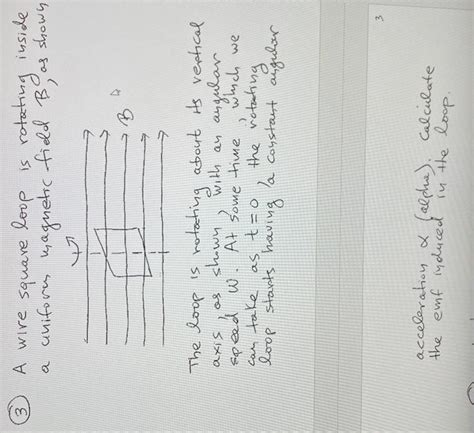 ③ A wire square loop is rotating inside
a uniform magnetic field B, as shown
B
The loop is rotating about its vertical
axis, as shown, with an angular
speed W. At some time, which we
can take as t=0 the rotating
loop starts having a constant angular
3
acceleration α (alpha). Calculate
the emf induced in the loop.